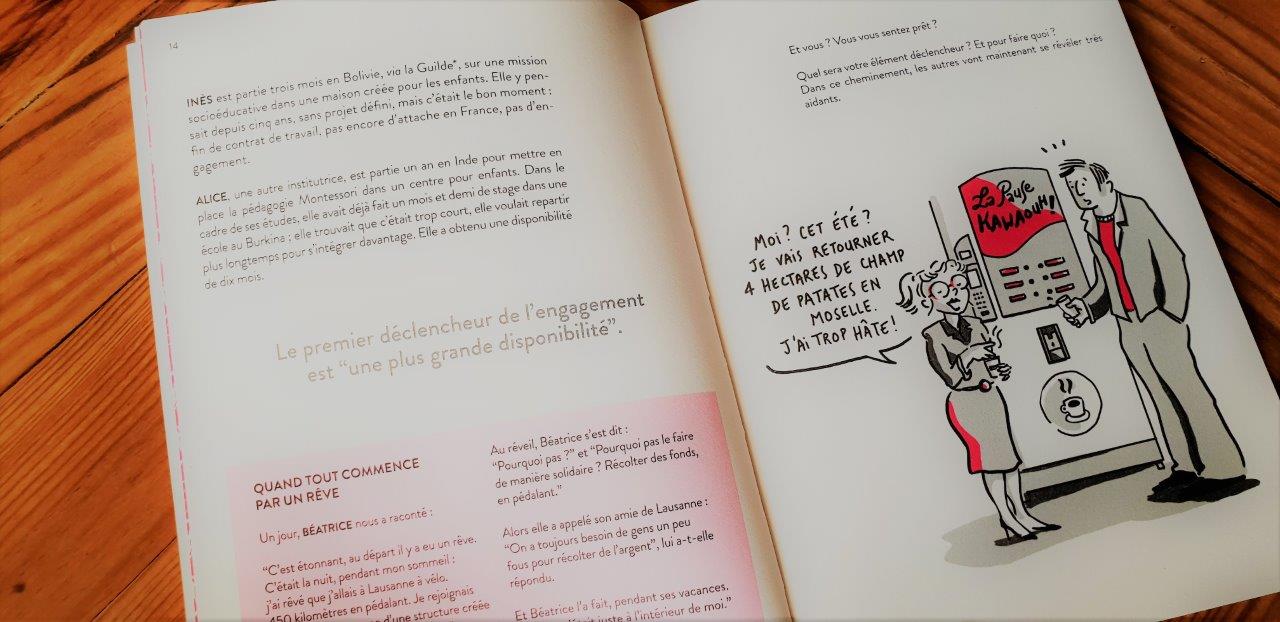 14
INÈS est partie trois mois en Bolivie, via la Guilde*, sur une mission
socioéducative dans une maison créée pour les enfants. Elle y pen-
sait depuis cinq ans, sans projet défini, mais c'était le bon moment :
fin de contrat de travail, pas encore d'attache en France, pas d'en-
gagement.
ALICE, une autre institutrice, est partie un an en Inde pour mettre en
place la pédagogie Montessori dans un centre pour enfants. Dans le
cadre de ses études, elle avait déjà fait un mois et demi de stage dans une
école au Burkina ; elle trouvait que c'était trop court, elle voulait repartir
plus longtemps pour s'intégrer davantage. Elle a obtenu une disponibilité
de dix mois.
Le premier déclencheur de l'engagement
est “une plus grande disponibilité”.
QUAND TOUT COMMENCE
PAR UN RÊVE
Un jour, BÉATRICE nous a raconté :
“C'est étonnant, au départ il y a eu un rêve.
C'était la nuit, pendant mon sommeil :
j'ai rêvé que j'allais à Lausanne à vélo.
450 kilomètres en pédalant. Je rejoignais
d'une structure créée
Au réveil, Béatrice s'est dit :
“Pourquoi pas ?” et “Pourquoi pas le faire
de manière solidaire ? Récolter des fonds,
en pédalant.”
Alors elle a appelé son amie de Lausanne :
“On a toujours besoin de gens un peu
fous pour récolter de l'argent”, lui a-t-elle
répondu.
Et Béatrice l'a fait, pendant ses vacances.
juste à l'intérieur de moi.”
Et vous ? Vous vous sentez prêt ?
Quel sera votre élément déclencheur ? Et pour faire quoi ?
Dans ce cheminement, les autres vont maintenant se révéler très
aidants.
MOI ? CET ÉTÉ ?
JE VAIS RETOURNER
4 HECTARES DE CHAMP
DE PATATES EN
MOSELLE.
J'AI TROP HÂTE !
La Pause
KAWAOUH !